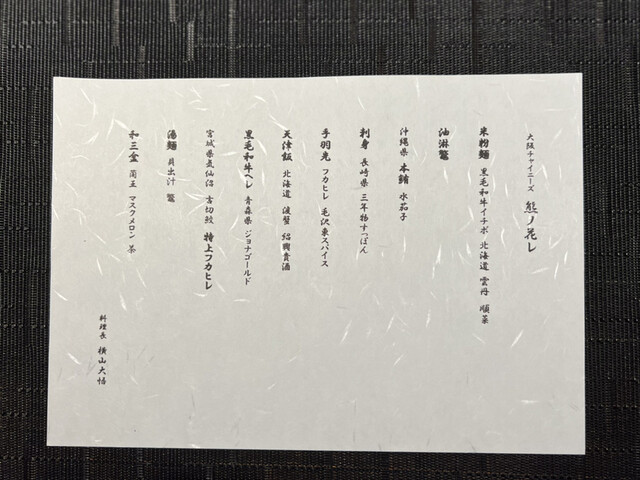 大阪チャイニーズ 熊ノ花レ
米粉麺 黒毛和牛イチボ 北海道 雲丹 順菜
油淋鱉
沖縄県 本鮪 水茄子
刺身 長崎県 三年物すっぽん
手羽先 フカヒレ 毛沢東スパイス
天津飯 北海道 渡蟹 紹興貴酒
黒毛和牛ヘレ 青森県 ジョナゴールド
宮城県気仙沼 吉切鮫 特上フカヒレ
湯麺 貝出汁 鱉
和三盆 蘭王 マスクメロン 茶
料理長 横山大悟